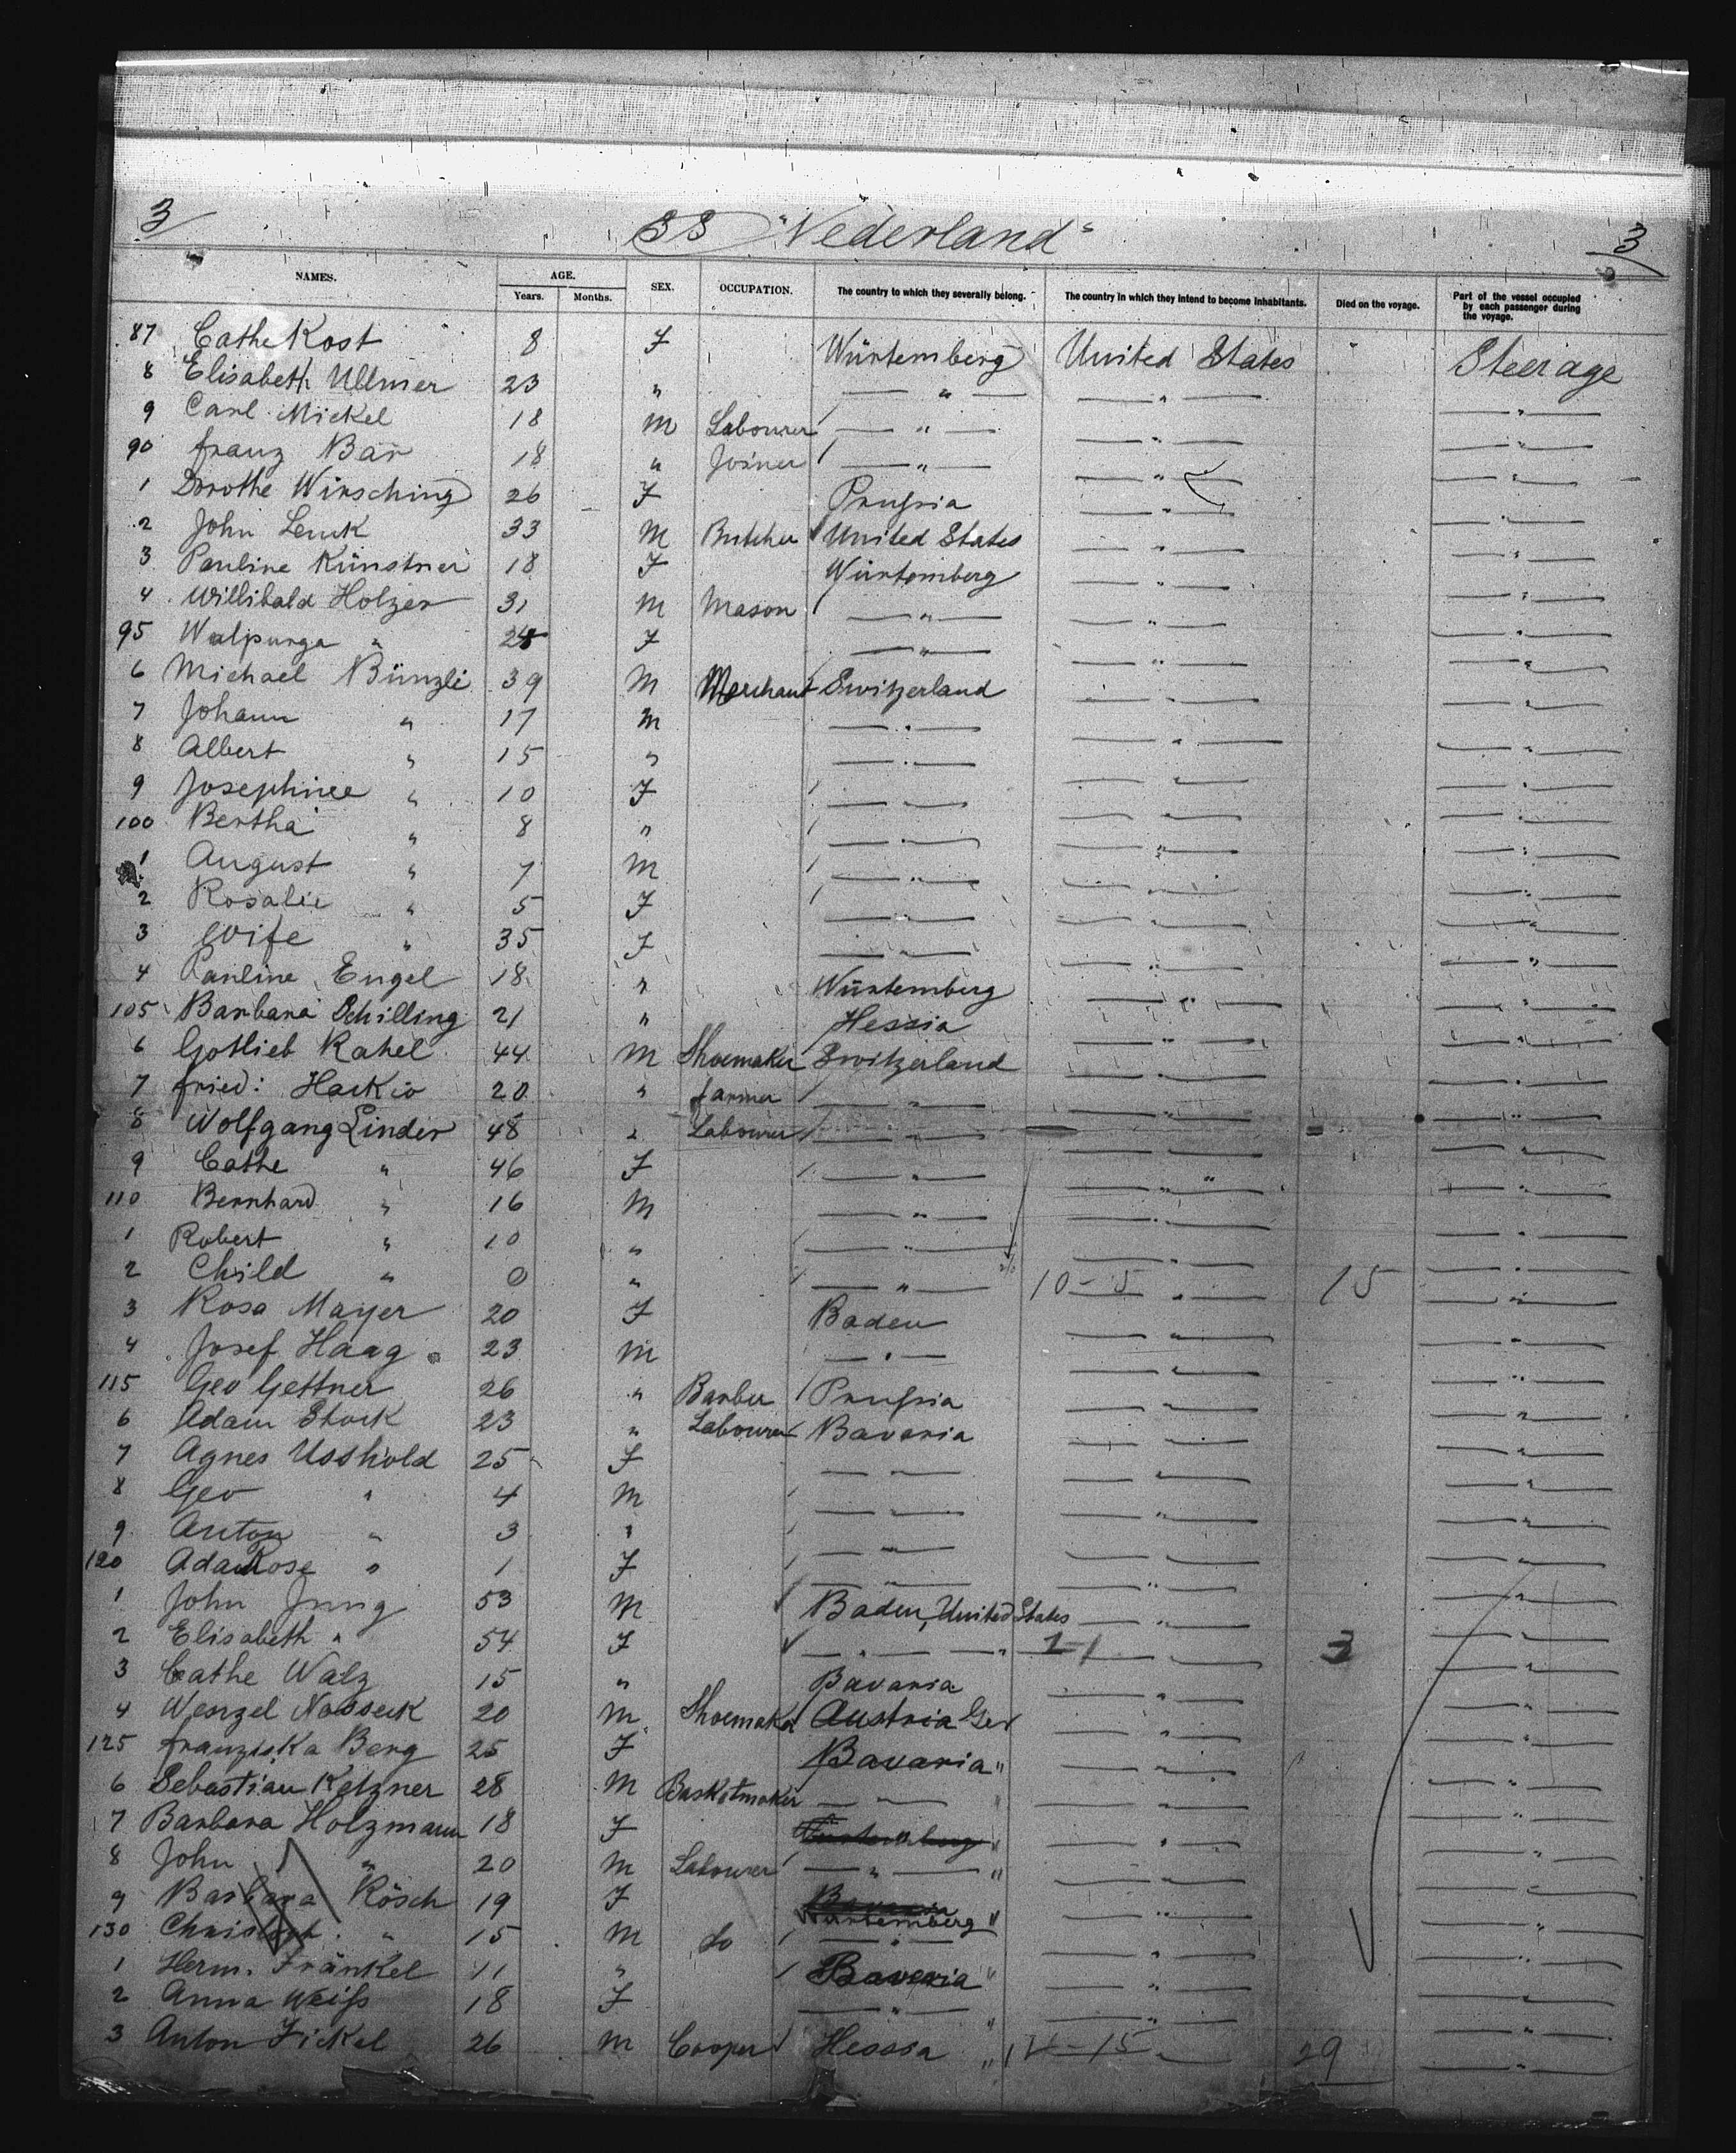 3 SS "Nederland" 3
NAMES. AGE. Years. Months. SEX. OCCUPATION. The country to which they severally belong. The country in which they intend to become inhabitants. Died on the voyage. Part of the vessel occupied by each passenger during the voyage.
87 Cathe Kost 8 F Würtemberg United States Steerage
8 Elisabeth Ullmer 23 " — " — — " — — " —
9 Carl Mickel 18 M Labourer — " — — " — — " —
90 Franz Bär 18 " Joiner — " — — " — — " —
1 Dorothe Wirsching 26 F Prussia — " — — " —
2 John Lenk 33 M Butcher United States — " — — " —
3 Pauline Künstner 18 F Würtemberg — " — — " —
4 Willibald Holzer 31 M Mason — " — — " — — " —
95 Walpurga " 24 F — " — — " — — " —
6 Michael Bünzli 39 M Merchant Switzerland — " — — " —
7 Johann " 17 M — " — — " — — " —
8 Albert " 15 " — " — — " — — " —
9 Josephine " 10 F — " — — " — — " —
100 Bertha " 8 " — " — — " — — " —
1 August " 7 M — " — — " — — " —
2 Rosalie " 5 F — " — — " — — " —
3 Wife " 35 F — " — — " — — " —
4 Pauline Engel 18 " Würtemberg — " — — " —
105 Barbara Schilling 21 " Hessia — " — — " —
6 Gottlieb Kahel 44 M Shoemaker Switzerland — " — — " —
7 Fried: 20 " Farmer — " — — " — — " —
8 Wolfgang Linder 48 " Labourer — " — — " — — " —
9 Cathe " 46 F — " — — " — — " —
110 Bernhard " 16 M — " — — " — — " —
1 Robert " 10 " — " — — " — — " —
2 Child " 0 " — " — 10-5 — " — 15 — " —
3 Rosa Mayer 20 F Baden — " — — " —
4 Josef Haag 23 M — " — — " — — " —
115 Geo Gettner 26 " Barber Prussia — " — — " —
6 Adam Stock 23 " Labourer Bavaria — " — — " —
7 Agnes Usshold 25 F — " — — " — — " —
8 Geo " 4 M — " — — " — — " —
9 Anton " 3 " — " — — " — — " —
120 Ada Rose " 1 F — " — — " — — " —
1 John Jung 53 M Baden, United States — " — — " —
2 Elisabeth " 54 F — " — " 1-1 — 3 — " —
3 Cathe Walz 15 " Bavaria — " — — " —
4 Wenzel Nosseck 20 M Shoemaker Austria Ger — " — — " —
125 Franziska Berg 25 F Bavaria " — " — — " —
6 Sebastian Kelzner 28 M Basketmaker — " — " — " — — " —
7 Barbara Holzmann 18 F Würtemberg " — " — — " —
8 John " 20 M Labourer — " — " — " — — " —
9 Barbara Rösch 19 F Bavaria Würtemberg " — " — — " —
130 " 15 M do — " — — " — — " —
1 Herm. Fränkel 11 " Bavaria " — " — — " —
2 Anna Weiss 18 F — " — " — " — — " —
3 Anton Fickel 26 M Cooper Hessia " — " — 29 — " —